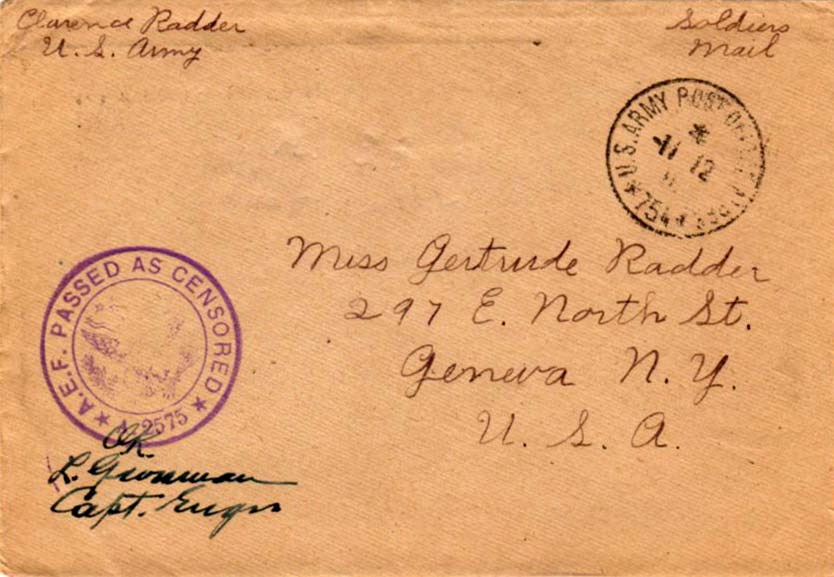 Clarence Radder
U. S. Army
Soldiers
Mail
U.S. ARMY POST OFFICE
*
11 12
* 754 *
Miss Gertrude Radder
297 E. North St.
Geneva N. Y.
U. S. A.
A.E.F. PASSED AS CENSORED
★ A 2575 ★
OK.
L.
Capt. Engrs